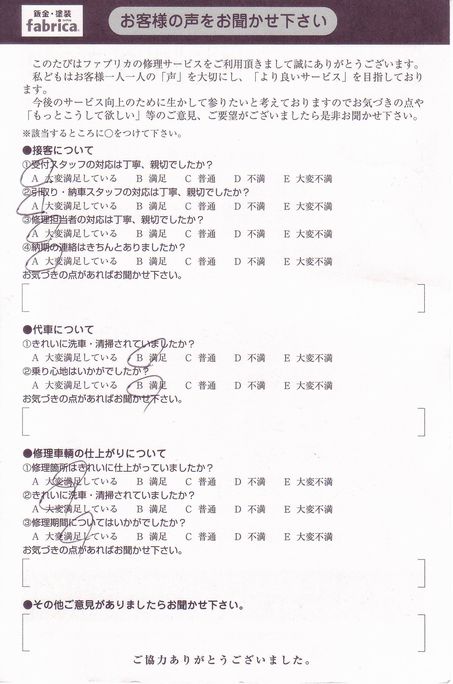 鈑金・塗装
fabrica.
お客様の声をお聞かせ下さい
このたびはファブリカの修理サービスをご利用頂きまして誠にありがとうございます。
私どもはお客様一人一人の「声」を大切にし、「より良いサービス」を目指しており
ます。
今後のサービス向上のために生かして参りたいと考えておりますのでお気づきの点や
「もっとこうして欲しい」等のご意見、ご要望がございましたら是非お聞かせ下さい。
※該当するところに○をつけて下さい。
●接客について
①受付スタッフの対応は丁寧、親切でしたか?
A 大変満足している B 満足 C 普通 D 不満 E 大変不満
②引取り・納車スタッフの対応は丁寧、親切でしたか?
A 大変満足している B 満足 C 普通 D 不満 E 大変不満
③修理担当者の対応は丁寧、親切でしたか?
A 大変満足している B 満足 C 普通 D 不満 E 大変不満
④納期の連絡はきちんとありましたか?
A 大変満足している B 満足 C 普通 D 不満 E 大変不満
お気づきの点があればお聞かせ下さい。
●代車について
①きれいに洗車・清掃されていましたか?
A 大変満足している B 満足 C 普通 D 不満 E 大変不満
②乗り心地はいかがでしたか?
A 大変満足している B 満足 C 普通 D 不満 E 大変不満
お気づきの点があればお聞かせ下さい。
●修理車輌の仕上がりについて
①修理箇所はきれいに仕上がっていましたか?
A 大変満足している B 満足 C 普通 D 不満 E 大変不満
②きれいに洗車・清掃されていましたか?
A 大変満足している B 満足 C 普通 D 不満 E 大変不満
③修理期間についてはいかがでしたか?
A 大変満足している B 満足 C 普通 D 不満 E 大変不満
お気づきの点があればお聞かせ下さい。
●その他ご意見がありましたらお聞かせ下さい。
ご協力ありがとうございました。